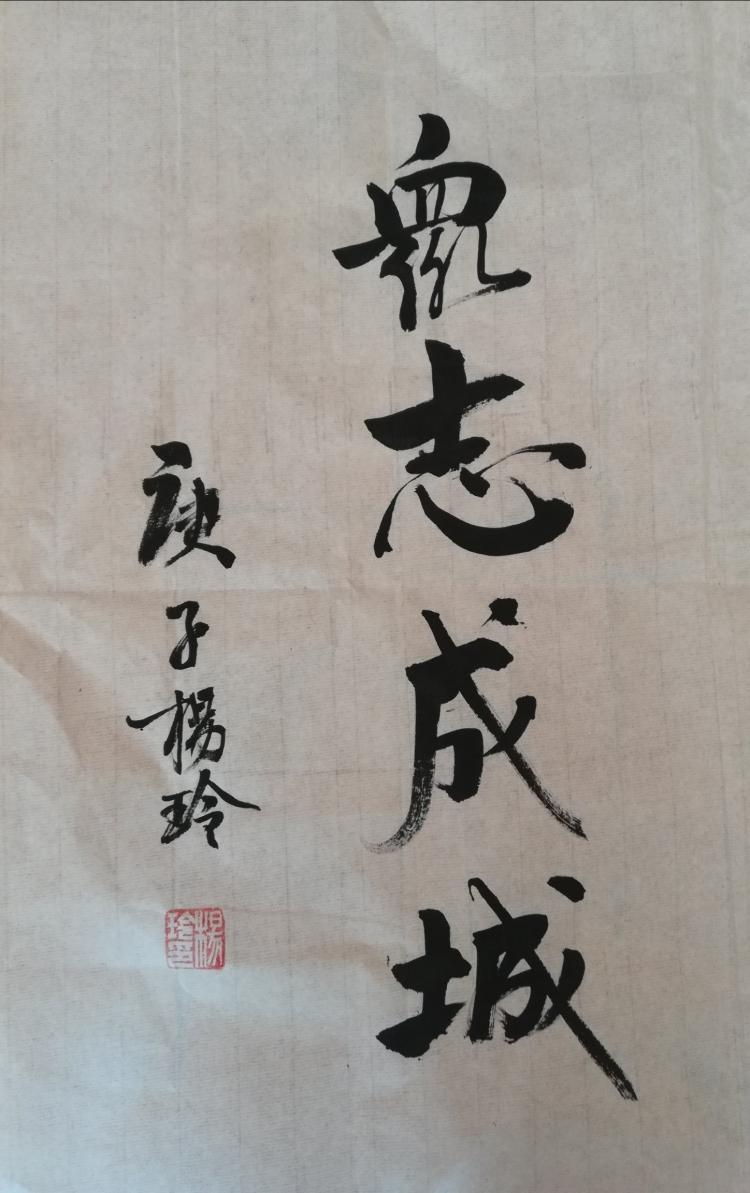 衆志成城
庚子楊玲
楊玲印